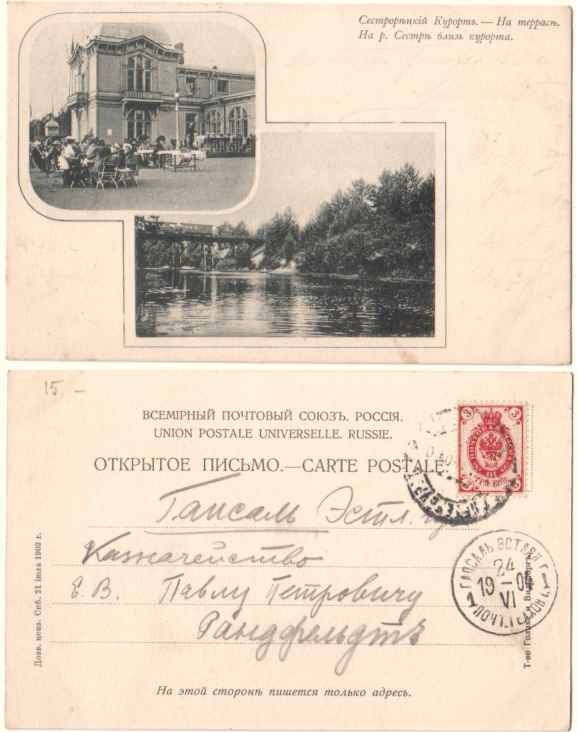 Сестрорѣцкій Курортъ. — На террасѣ.
На р. Сестрѣ близъ курорта.
15. –
ВСЕМІРНЫЙ ПОЧТОВЫЙ СОЮЗЪ. РОССІЯ.
UNION POSTALE UNIVERSELLE. RUSSIE.
ОТКРЫТОЕ ПИСЬМО.—CARTE POSTALE.
3 3
Гапсаль Эстл. г.
Казначейство
Е. В. Павлу Петровичу
Рандфельдтъ
ГАПСАЛЬ ЭСТЛЯ Г.
24
19 – 04
VI
1 ПОЧТ. 1
Дозв. ценз. Спб. 21 іюля 1903 г.
Т-во Голике и
На этой сторонѣ пишется только адресъ.